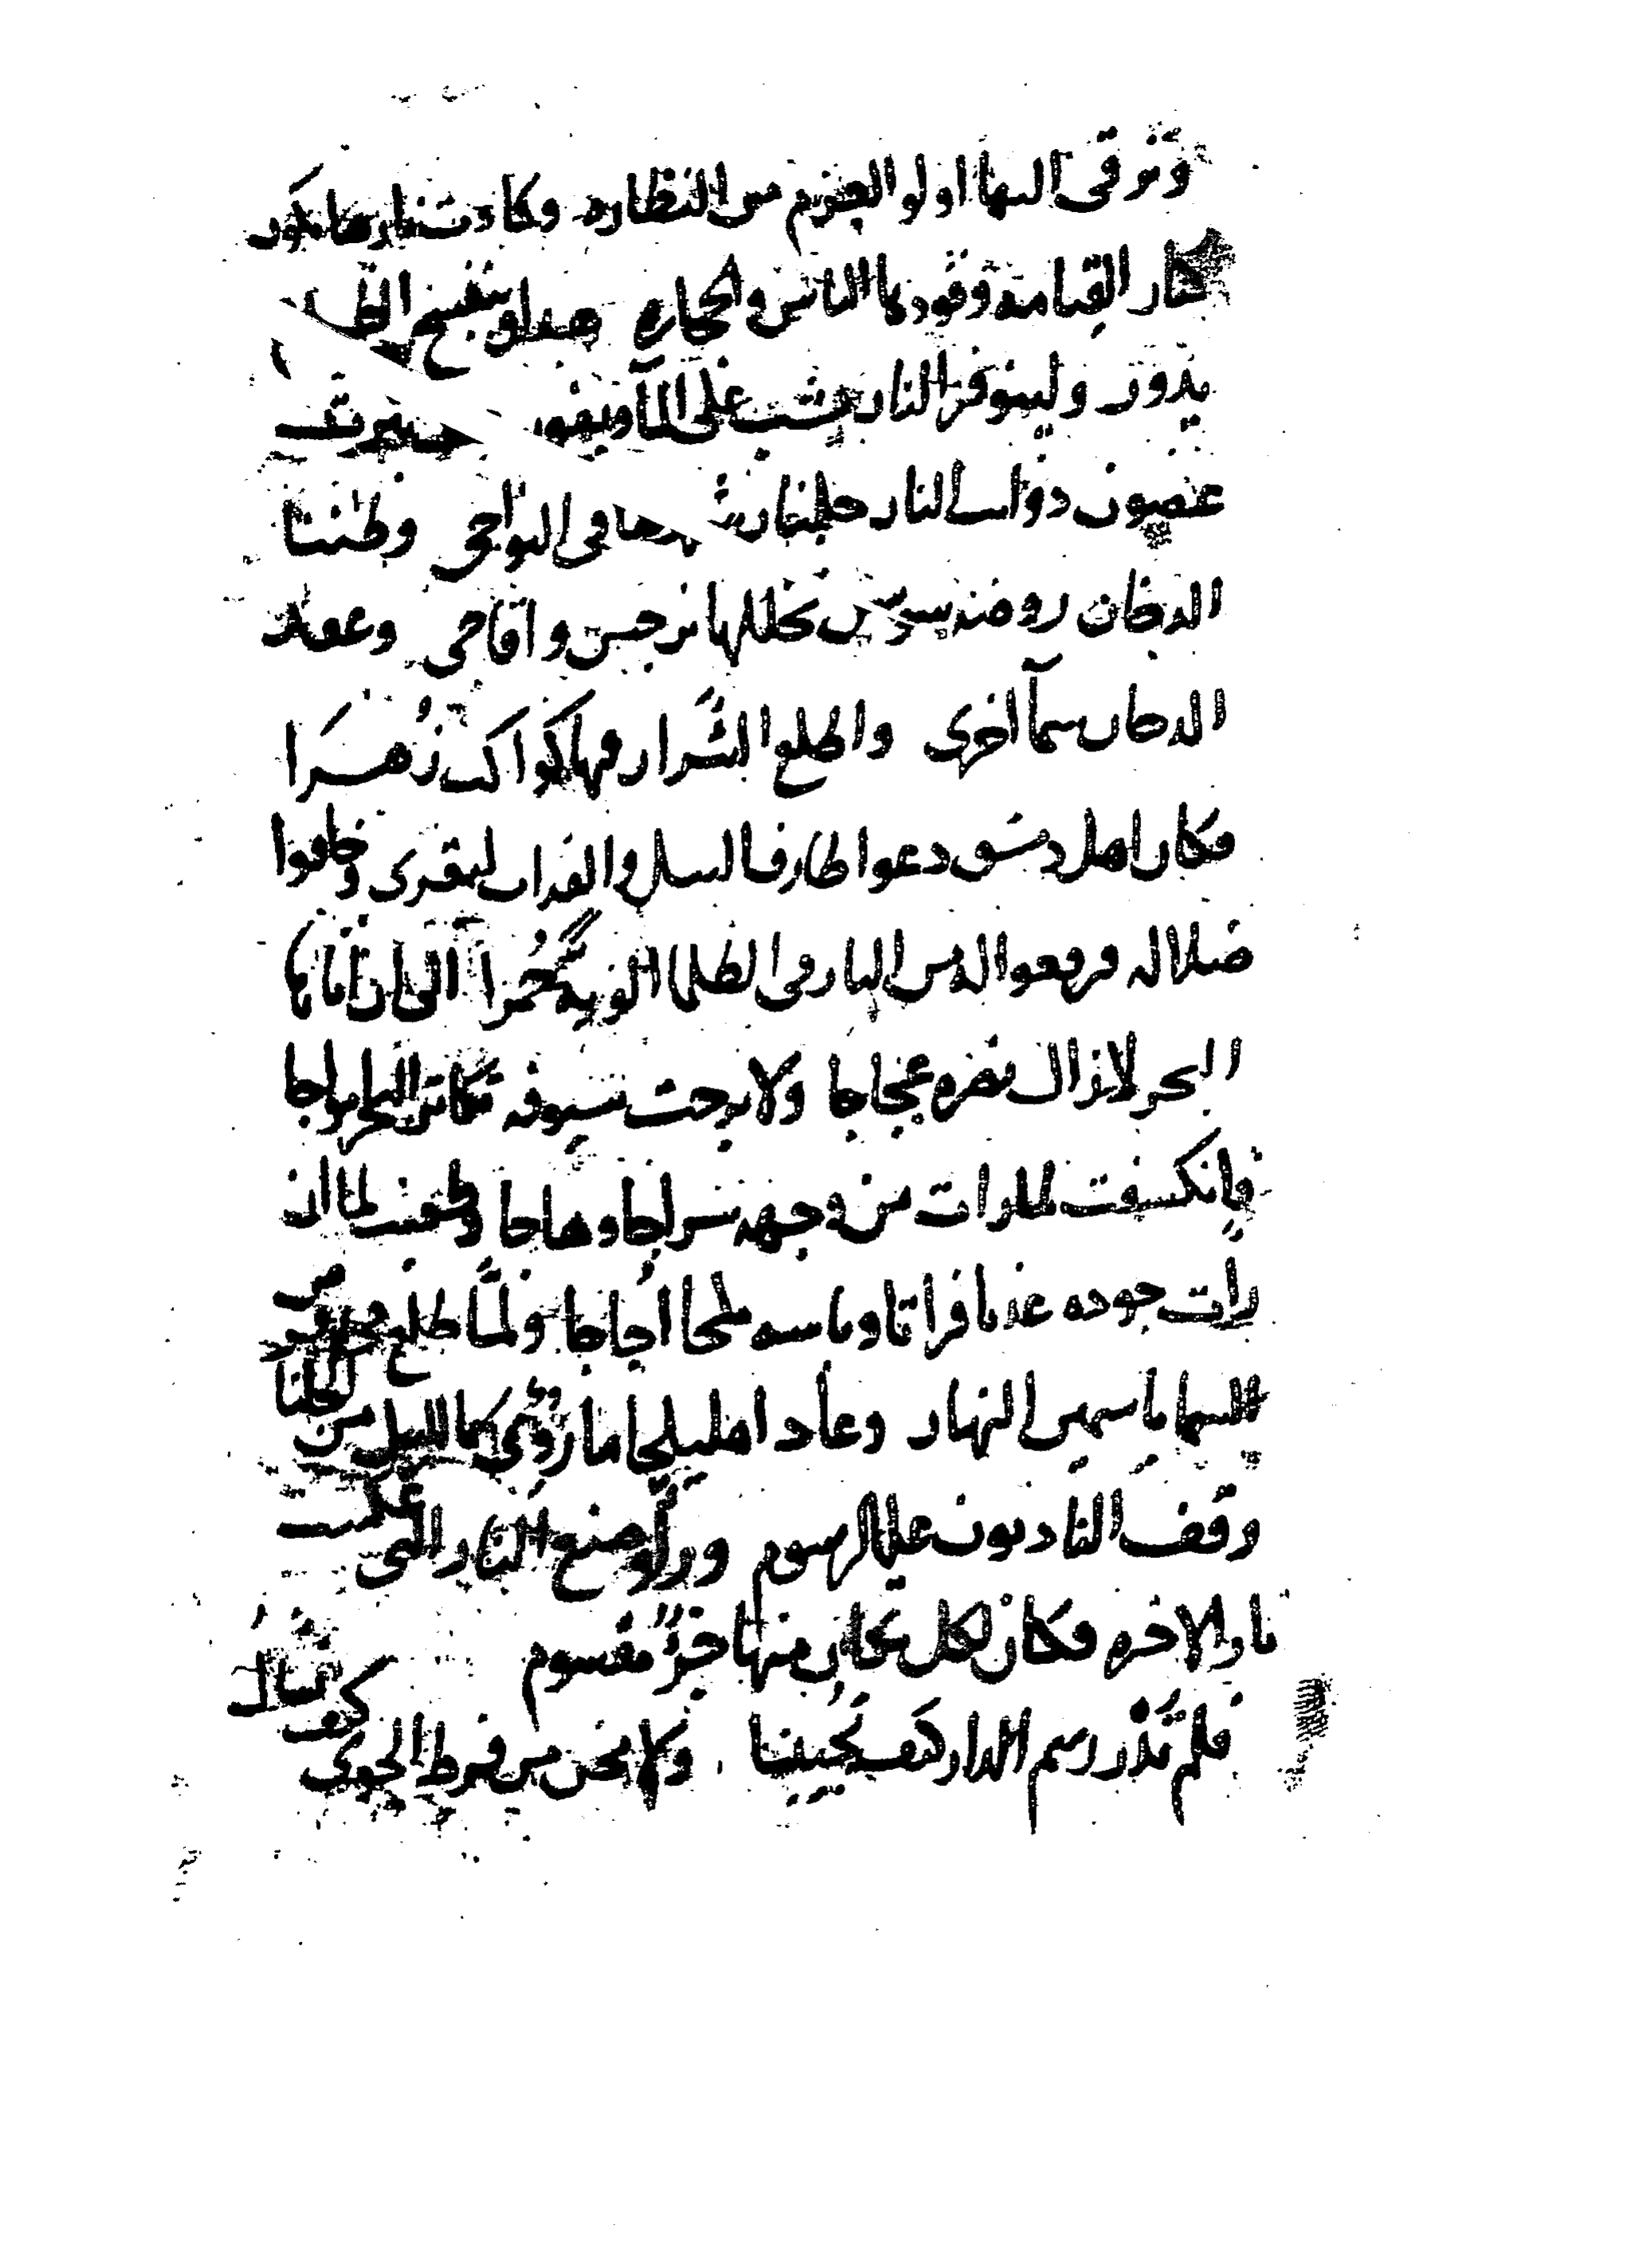 وترقى اليها اولو العزم من النظاره وكادت نارها تكون
كنار القيامة وقودها الناس والحجاره هذا وبنفسج
يدور ولينوفر النار يشب على الماء ويفور صيرت
غصون ذوائب النار جلنار في النواحي وظننا
الدخان روضه سوسن تخللها نرجس واقاحي وعقد
الدخان سمآ اخرى واطلع الشرار فيها كواكب زُهَرا
فكان اهل دمشق دعوا طارق الليل والقداب ليقرى وخافوا
ضلاله فرفعوا له من النار في الظلما الوية حُمرا الى ان اتاها
البحر لا زال نصره عجاجا ولا برحت سيوفه تكاثر البحر امواجا
فانكسفت لما رات من وجهه سراجا وهاجا وطفيت لما ان
رات جوده عذبا فراتا وباسه ملحا اُجاجا ولمّا طلع من
السما ياسمين النهار وعاد اهليلجا ما روى كما الليل من الجلنار
وقف النادبون على الرسوم وراو صنع النار التي عكست
نار الاخره فكان لكل مكان منها جزءٌ مقسوم
فلم تَدْر رسم الدار كيف تُجيبنا ولا نحن من فرط الجوى كيف نسالُ